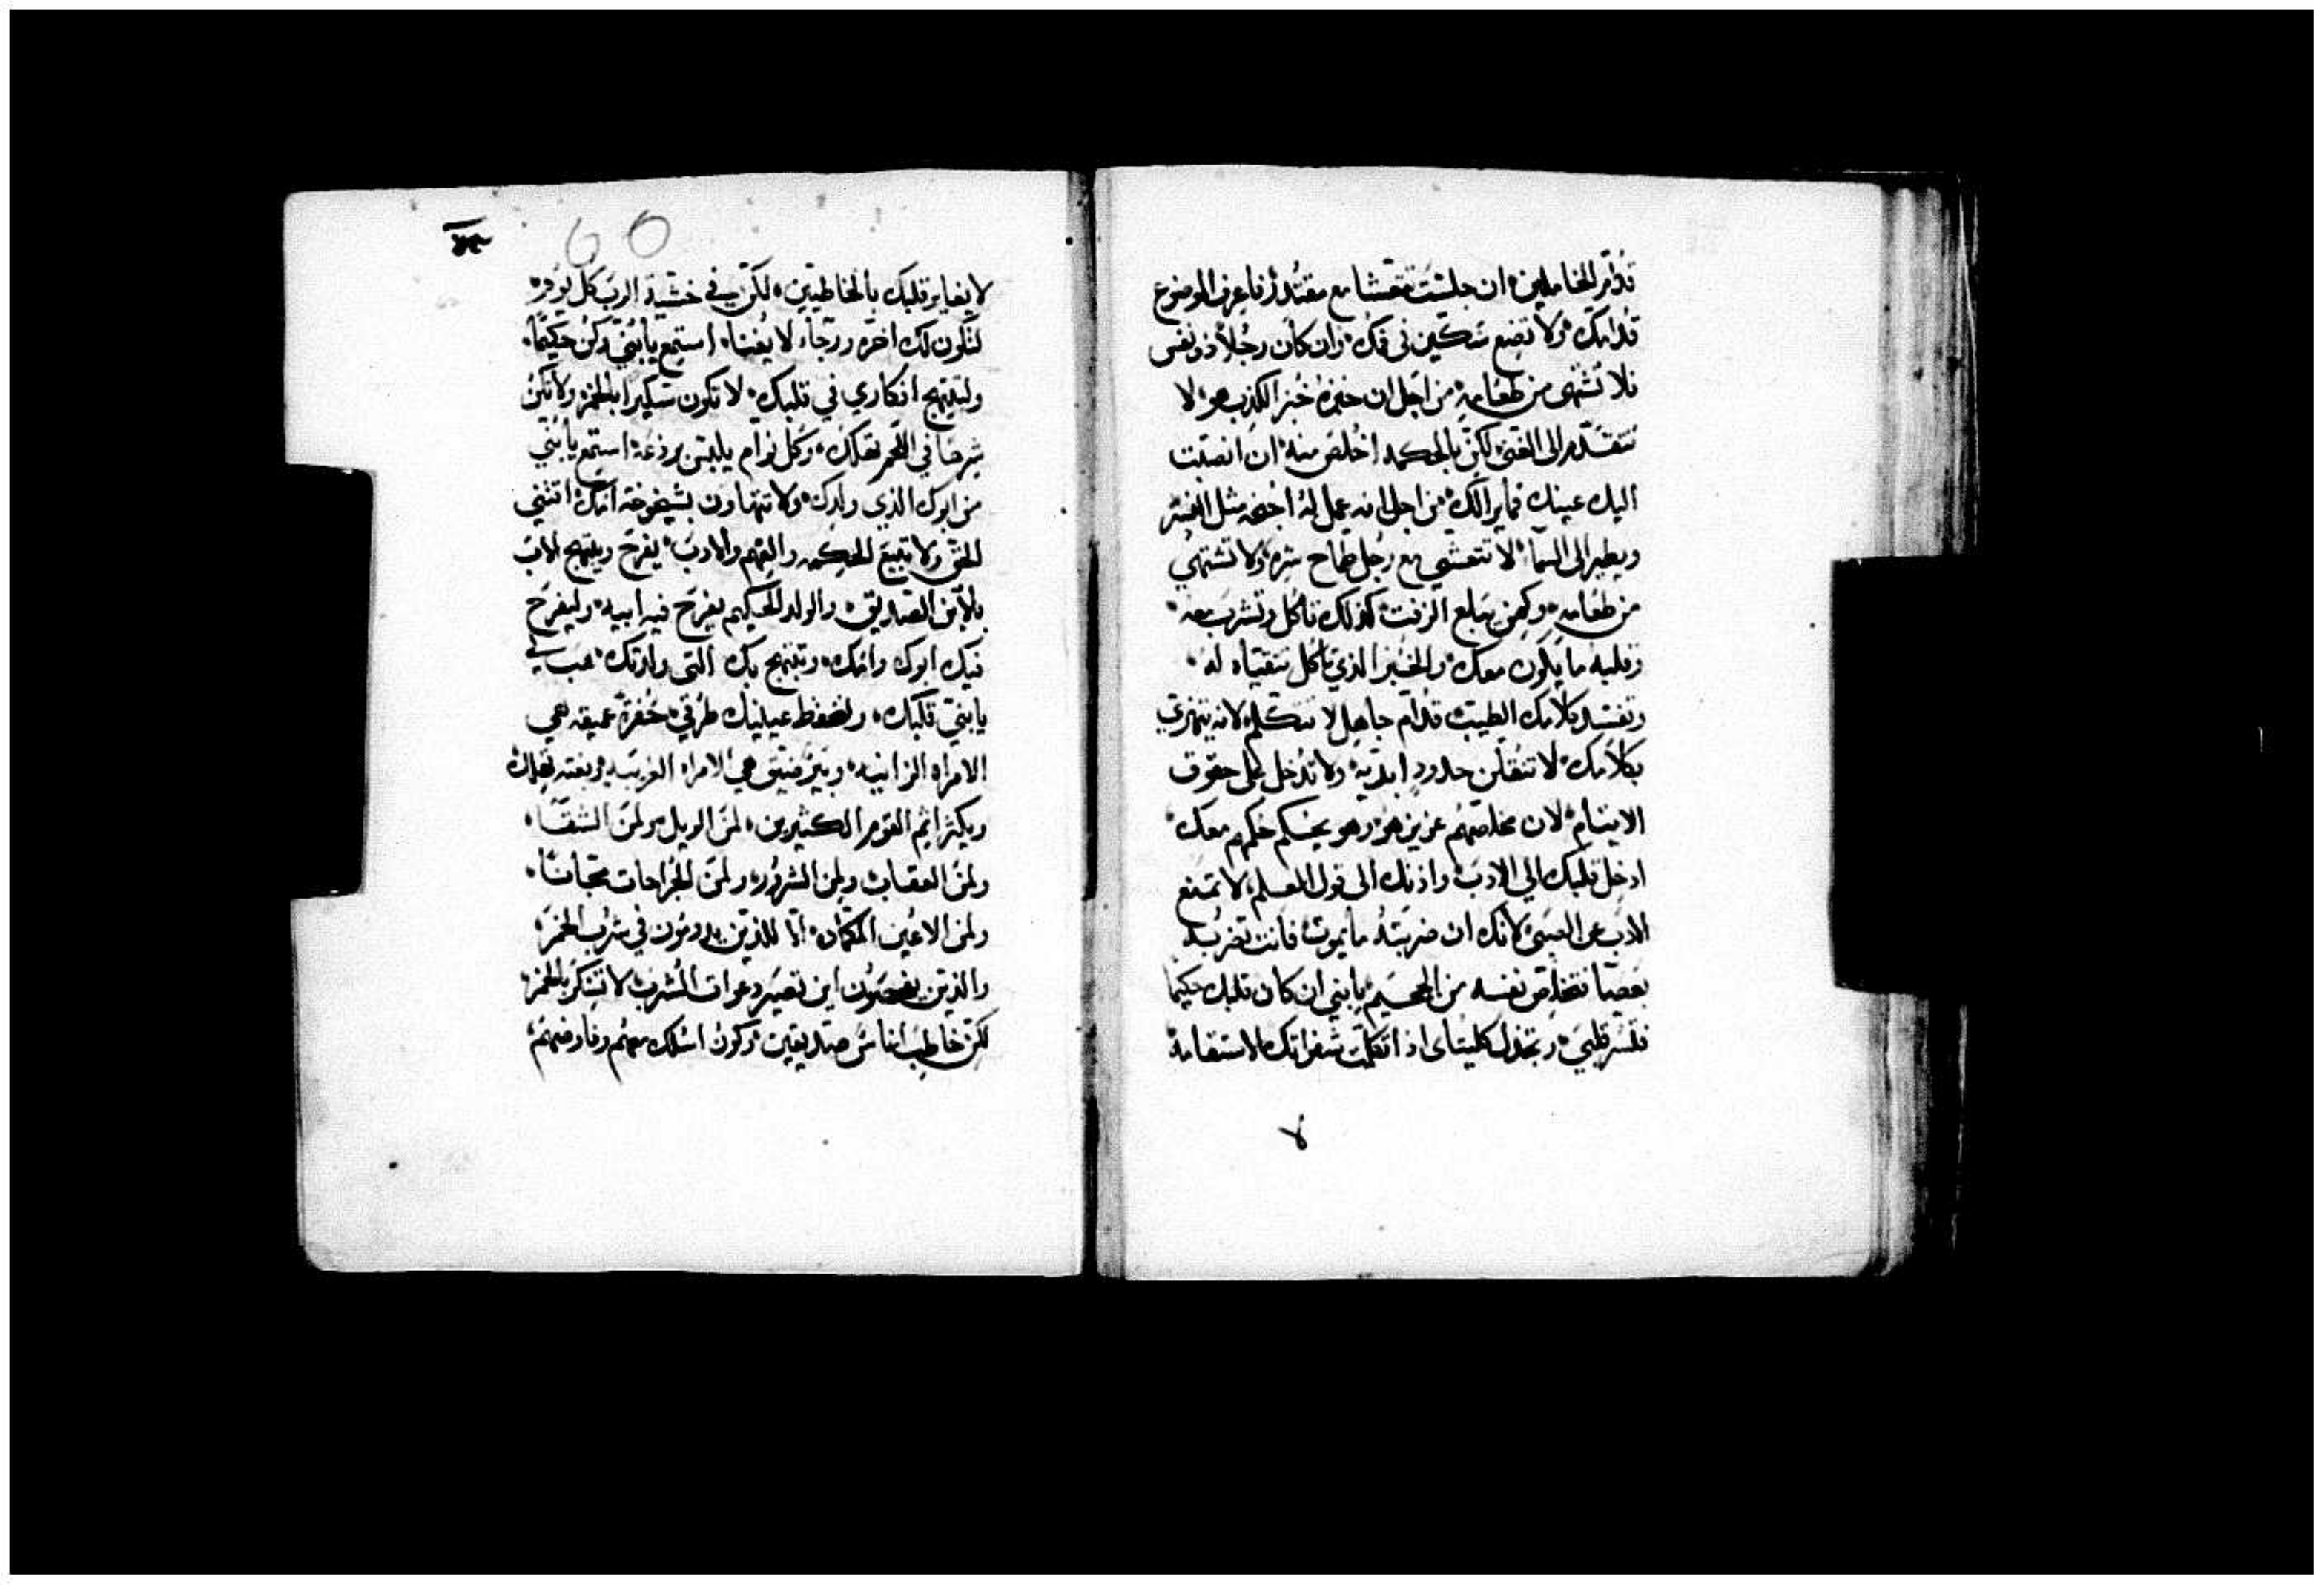 قدام الخاملين ان جلست تتعشا مع مقتدر فاعرف الموضوع
قدامك ولا تضع سكين في فمك وان كان رجلا ذو نفس
فلا تشتهى من طعامه من اجل ان خبزه خبز الكذب هو لا
تتقدم الى الغني لكن بالحكمه اخلص منه ان انصبت
اليك عينك فما يرا لك من اجل انه عمل له اجنحه مثل النسر
ويطير الى السما لا تتعشى مع رجل طماح شره ولا تشتهي
من طعامه وكمن يبلع الزفت كذلك تاكل وتشرب معه
وقلبه ما يكون معك والخبز الذي تاكل تتقيأه له
وتفسد كلامك الطيب قدام جاهل لا تتكلم لانه يتهزي
بكلامك لا تنقلن حدود ابديه ولا تدخل على حقوق
الايتام لان مخلصهم عزيز هو وهو يحكم حكمهم معك
ادخل قلبك الى الادب واذنك الى قول العلم لا تمنع
الادب عن الصبى لانك ان ضربته ما يموت فانت تضربه
بعصا فتخلص نفسه من الجحيم يا بني ان كان قلبك حكيما
فلسر قلبي وتجذل كليتاى اذا تكلمت شفاتك الاستقامه
لا
60
لا يغاير قلبك بالخاطيين لكن في خشية الرب كل يوم
لتكون لك اخره ورجاء لا يفنا استمع يا بني وكن حكيما
وليبتهج افكاري في قلبك لا تكون سكيرا بالخمر ولا تكن
شرها في اللحم تهلك وكل نوام يلبس برذعه استمع يا بني
من ابوك الذي ولدك ولا تتهاون بشيخوخة امك اقتني
الحق ولا تبيع الحكمه والفهم والادب يفرح ويبتهج الاب
بالابن الصديق والولد الحكيم يفرح فيه ابيه وليفرح
فيك ابوك وامك وتبتهج بك التى ولدتك هب لي
يا بني قلبك ولتحفظ عينيك طرقي حفرة عميقه هي
الامراه الزانيه وبير ضيق هي الامراه الغريبه وبغته تهلك
ويكثر اثم القوم الكثيرين لمن الويل ولمن الشقاء
ولمن العقاب ولمن الشرور ولمن الجراحات مجانا
ولمن الاعين المكمله اما للذين يدومون في شرب الخمر
والذين يفحصون اين تصير دعوات الشرب لا تسكر بالخمر
لكن خاطب اناس صديقين وكون اسلك معهم وفاوضهم